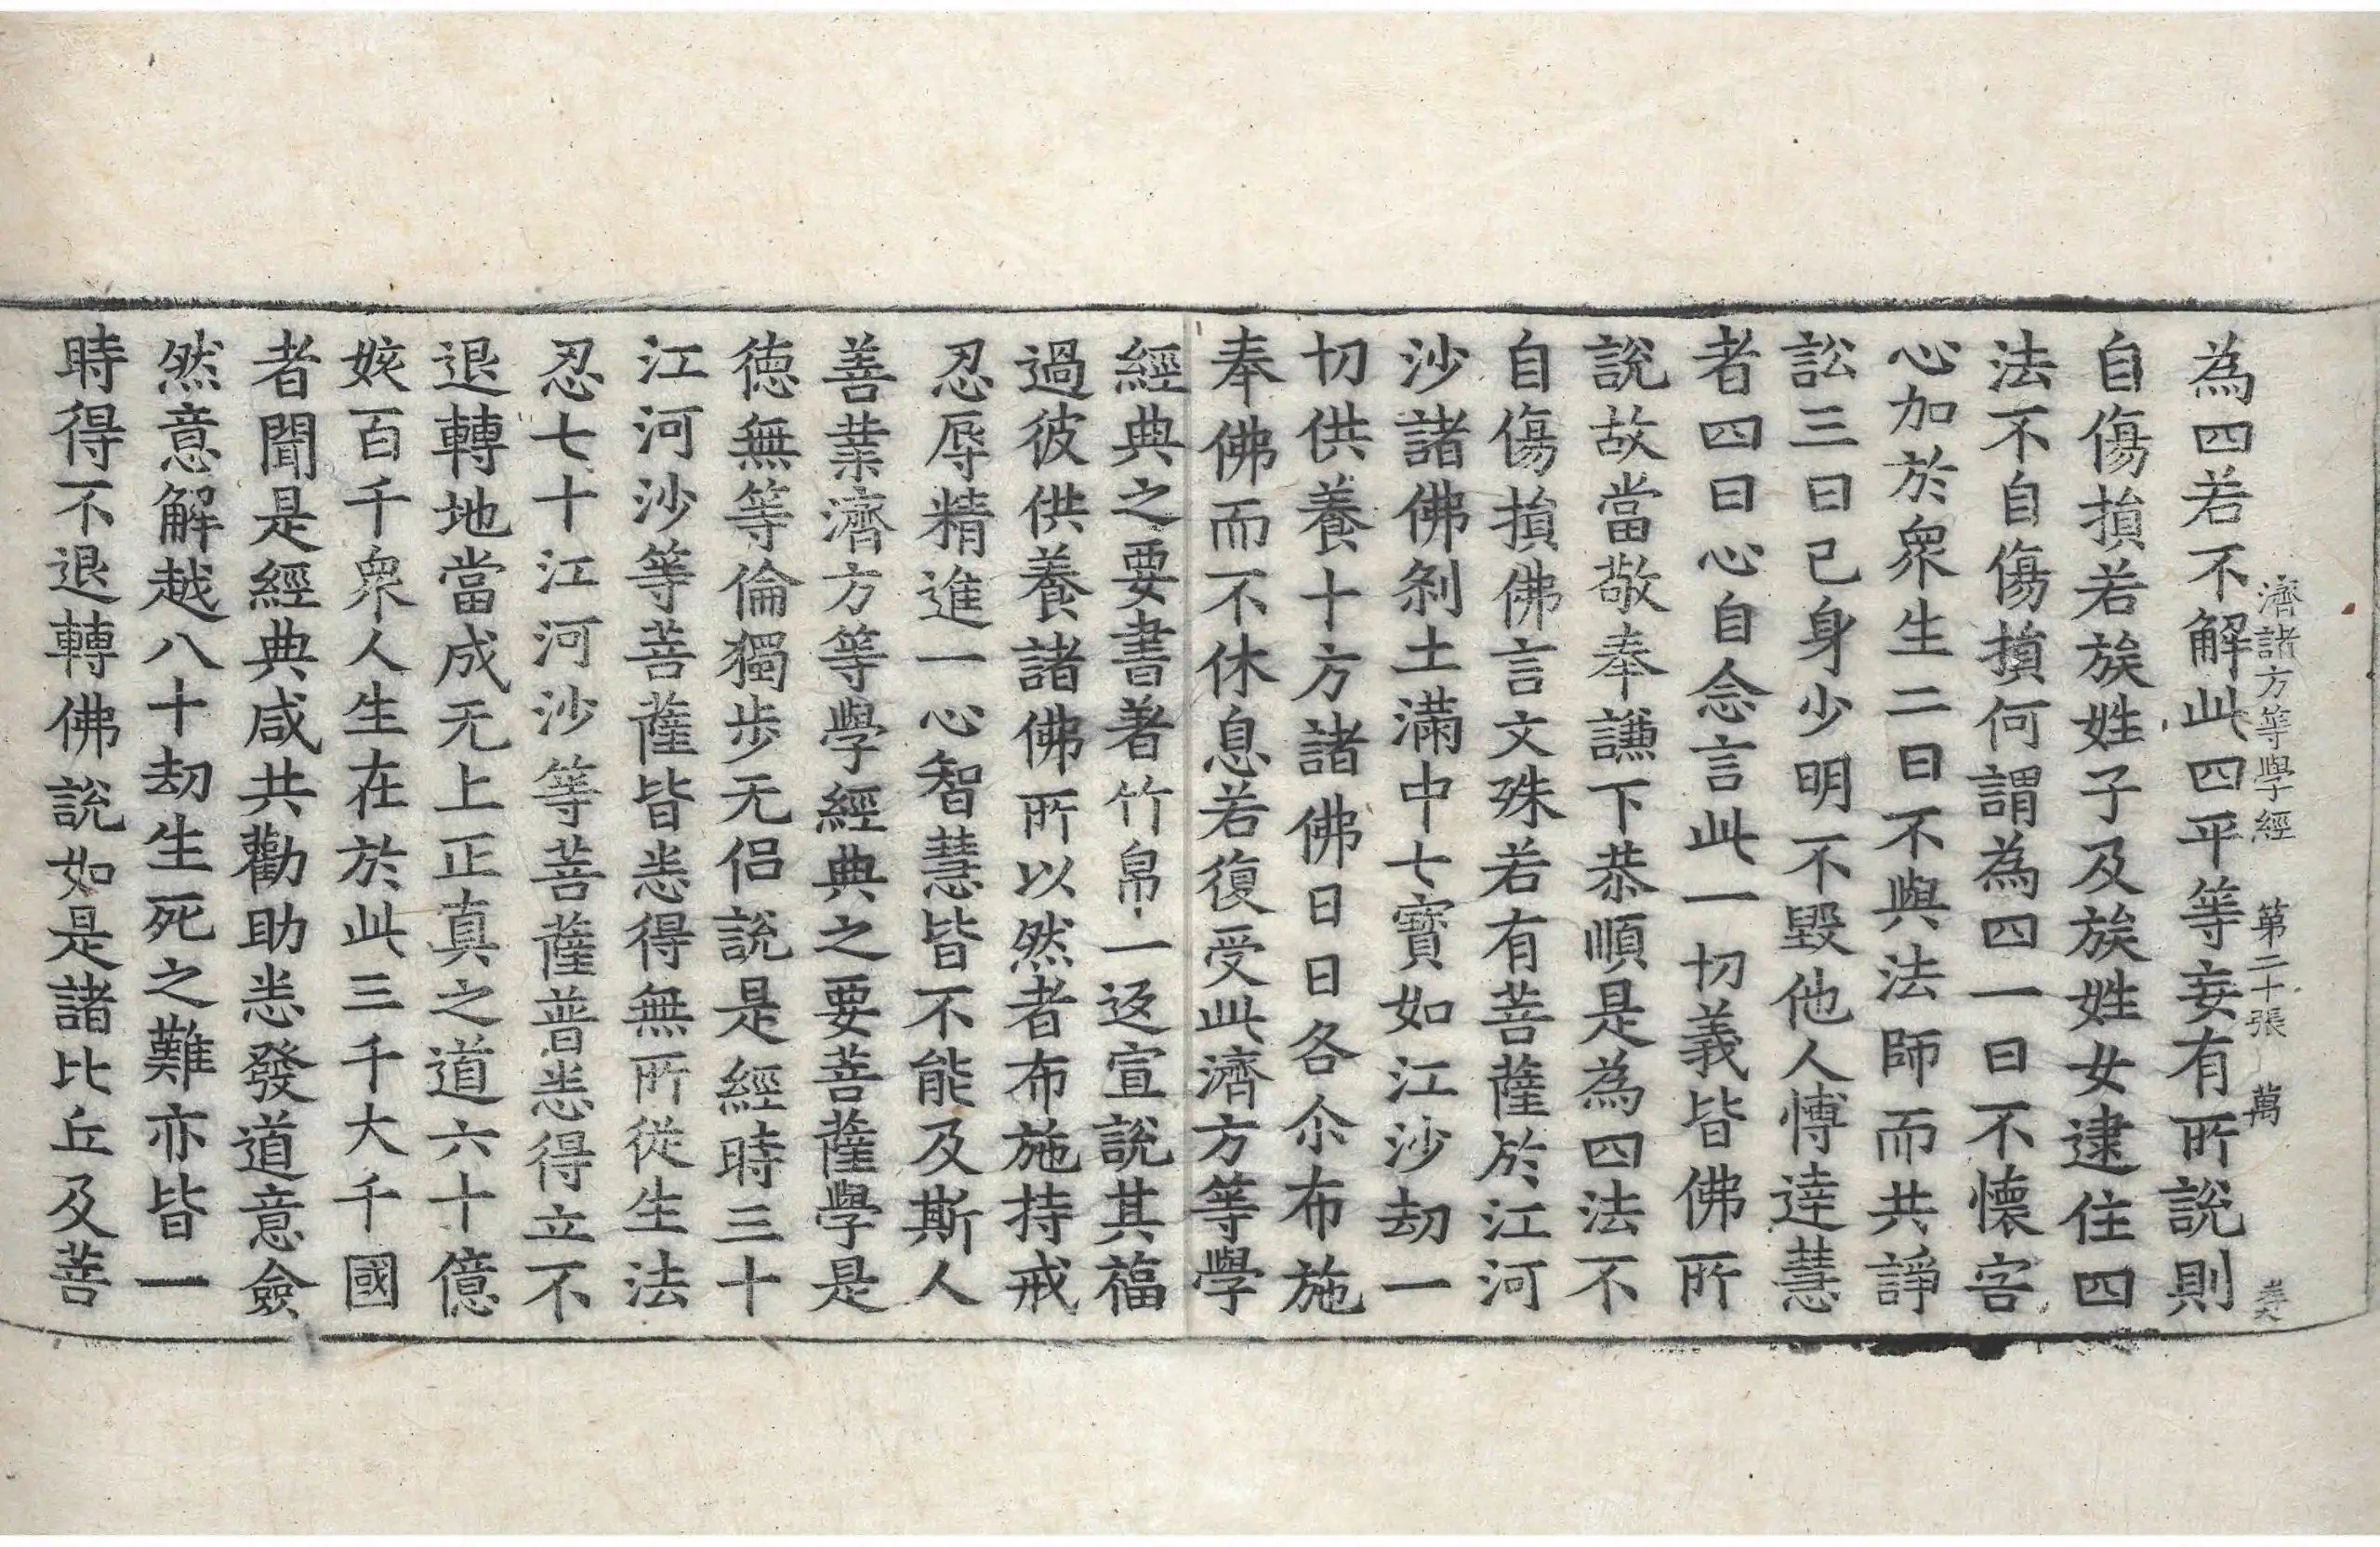 濟諸方等學經 第二十張 萬
為四若不解此四平等妄有所說則
自傷損若族姓子及族姓女逮住四
法不自傷損何謂為四一曰不懷害
心加於眾生二曰不與法師而共諍
訟三曰己身少明不毀他人博達慧
者四曰心自念言此一切義皆佛所
說故當敬奉謙下恭順是為四法不
自傷損佛言文殊若有菩薩於江河
沙諸佛剎土滿中七寶如江沙劫一
切供養十方諸佛日日各尒布施
奉佛而不休息若復受此濟方等學
經典之要書著竹帛一返宣說其福
過彼供養諸佛所以然者布施持戒
忍辱精進一心智慧皆不能及斯人
善業濟方等學經典之要菩薩學是
德無等倫獨步无侶說是經時三十
江河沙等菩薩皆悉得無所從生法
忍七十江河沙等菩薩普悉得立不
退轉地當成无上正真之道六十億
姟百千眾人生在於此三千大千國
者聞是經典咸共勸助悉發道意僉
然意解越八十劫生死之難亦皆一
時得不退轉佛說如是諸比丘及菩